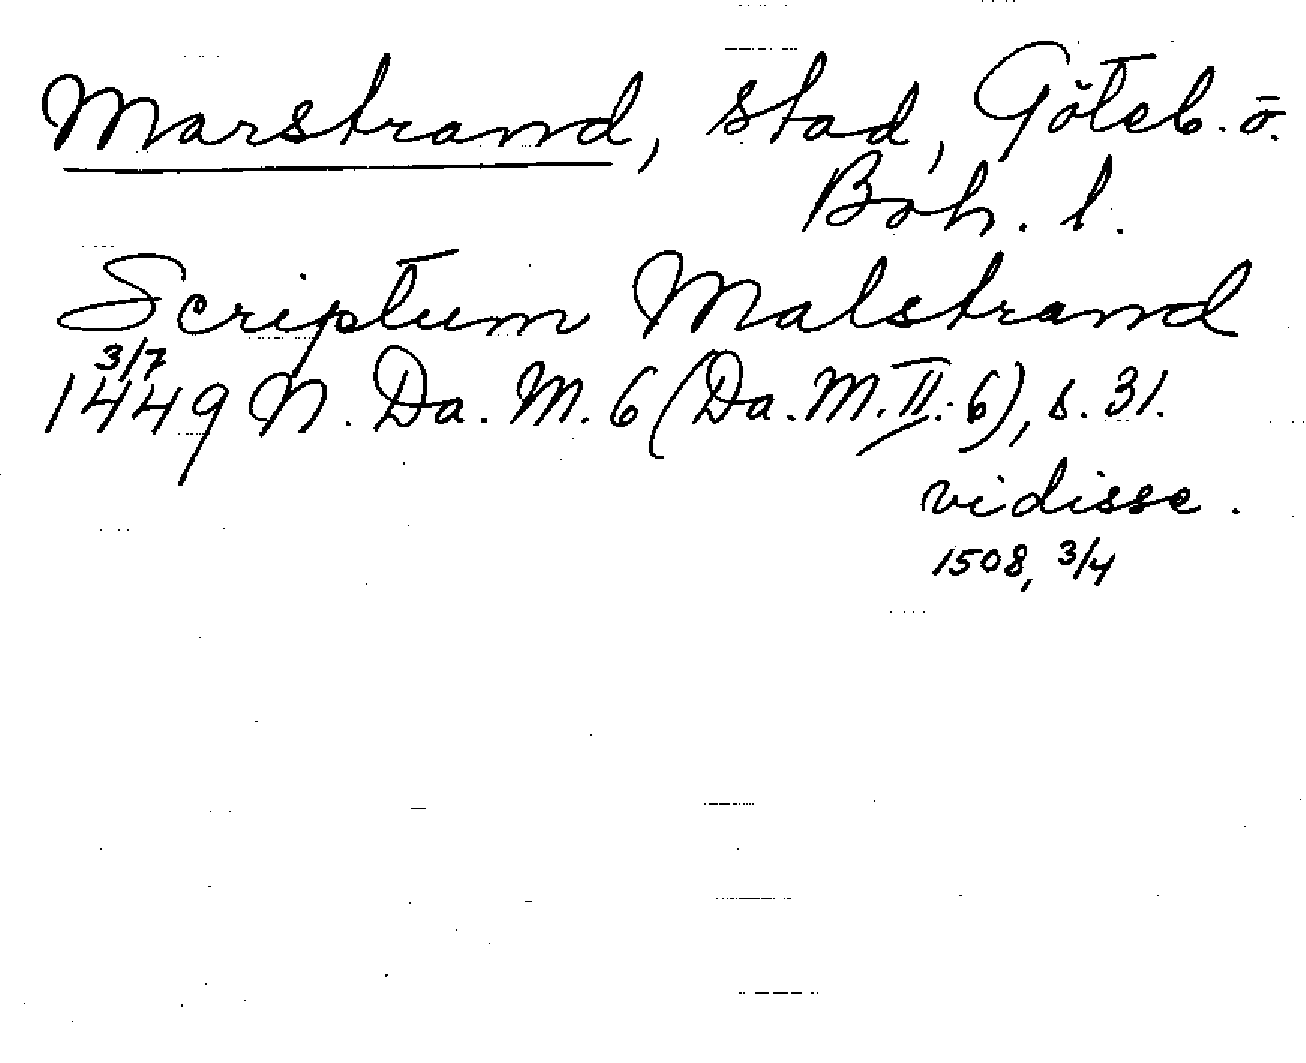 Marstrand, stad, Göteb. o.
Boh. l.
Scriptum Malstrand
3/7
1449 N. Da. M. 6 (Da. M. II: 6), s. 31.
vidisse.
1508, 3/4